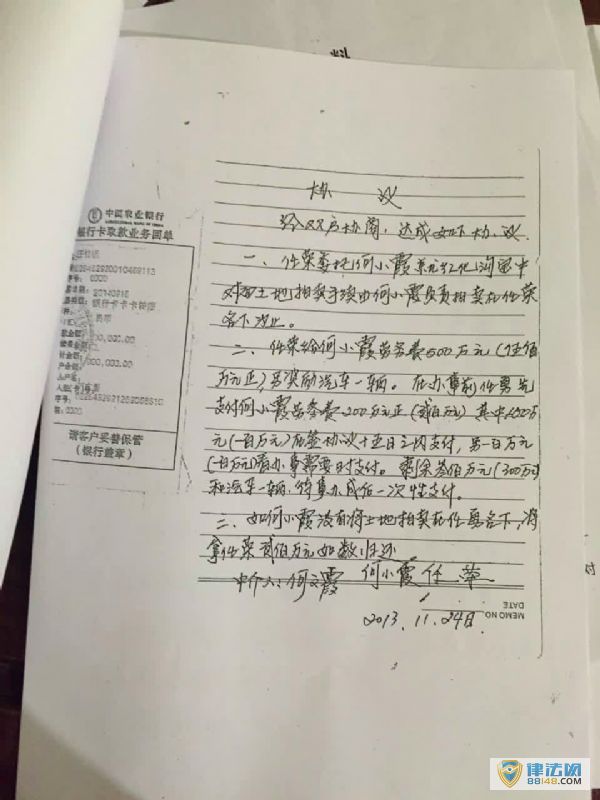 料
协 议
经双方协商，达成如下协议
一、任荣委托何小霞
土地拍卖手续由何小霞负责拍卖在任荣
名下为止。
二、任荣给何小霞劳务费500万元（伍佰
万元正）另奖励汽车一辆。在办事前任荣先
支付何小霞劳务费200万元正（贰佰万元）其中100万
元（一百万元）在签协议十五日之内支付，另一百万元
（一百万元）看办事需要时支付。剩余叁佰万元（300万元）
和汽车一辆，待事办成后一次性支付。
三、如何小霞没有将土地拍卖在任荣名下，将
拿任荣贰佰万元如数归还
中介人：何文霞 何小霞 任荣
2013.11.29日.
MEMO NO
DATE
中国农业银行
AGRICULTURAL BANK OF CHINA
银行卡取款业务回单
请客户妥善保管
（银行盖章）
对
律法网
88148.COM